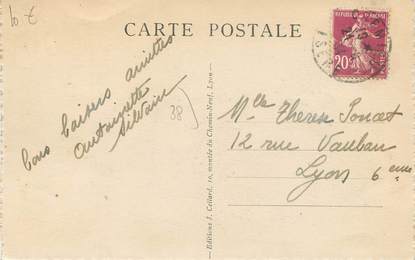 10 €
CARTE POSTALE
REPUBLIQUE FRANÇAISE
20c
Bons baisers amitiés
Antoinette
Silvain
38
Editions J. Cellard, 10, montée du Chemin-Neuf, Lyon—
Mlle Therese Poncet
12 rue Vauban
Lyon 6eme